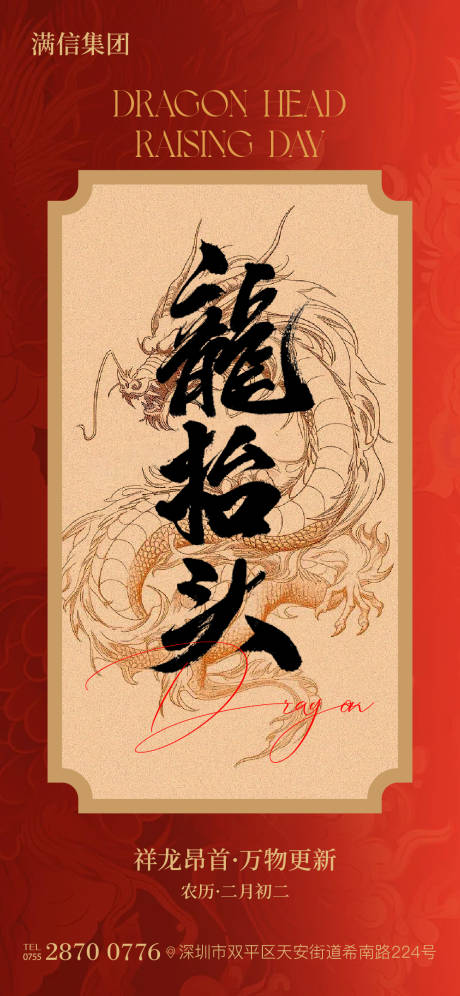 满信集团
DRAGON HEAD
RAISING DAY
龍抬头
Dragon
祥龙昂首·万物更新
农历·二月初二
TEL 0755 2870 0776 深圳市双平区天安街道希南路224号